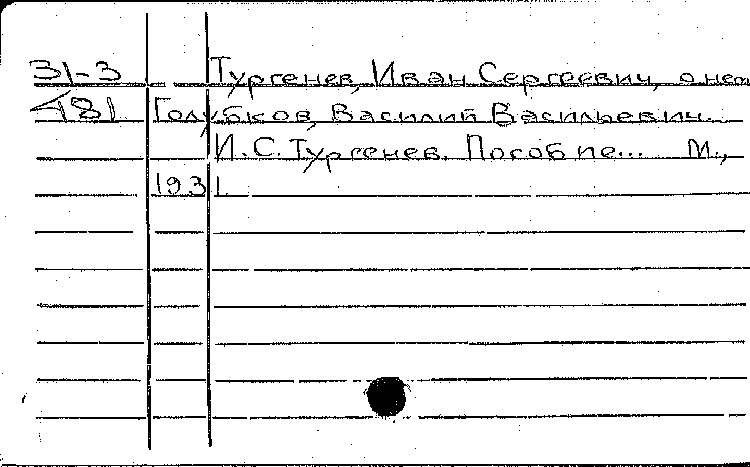 31-3 Тургенев, Иван Сергеевич, о нем
481 Голубков, Василий Васильевич.
И. С. Тургенев. Пособие... М.,
1931.